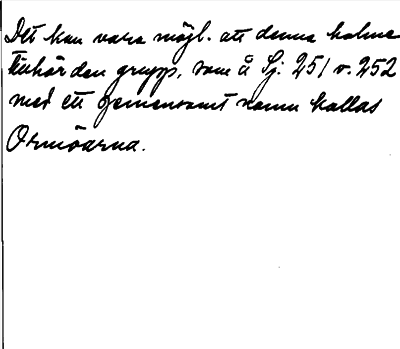 Det kan vara möjl. att denna holme
tillhör den grupp, som å Sj. 251 v. 252
med ett gemensamt namn kallas
Ormöarna.